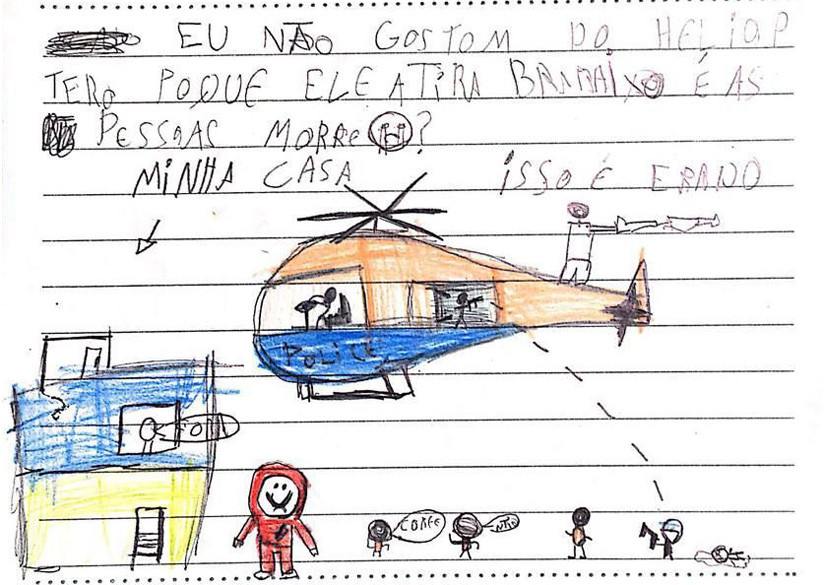 EU NÃO GOSTOM DO HELIOP
TERO POQUE ELE ATIRA BRAMAIXO É AS
PESSOAS MORRE ?
MINHA CASA
ISSO É ERADO
POLICE
CORRE
NÃO